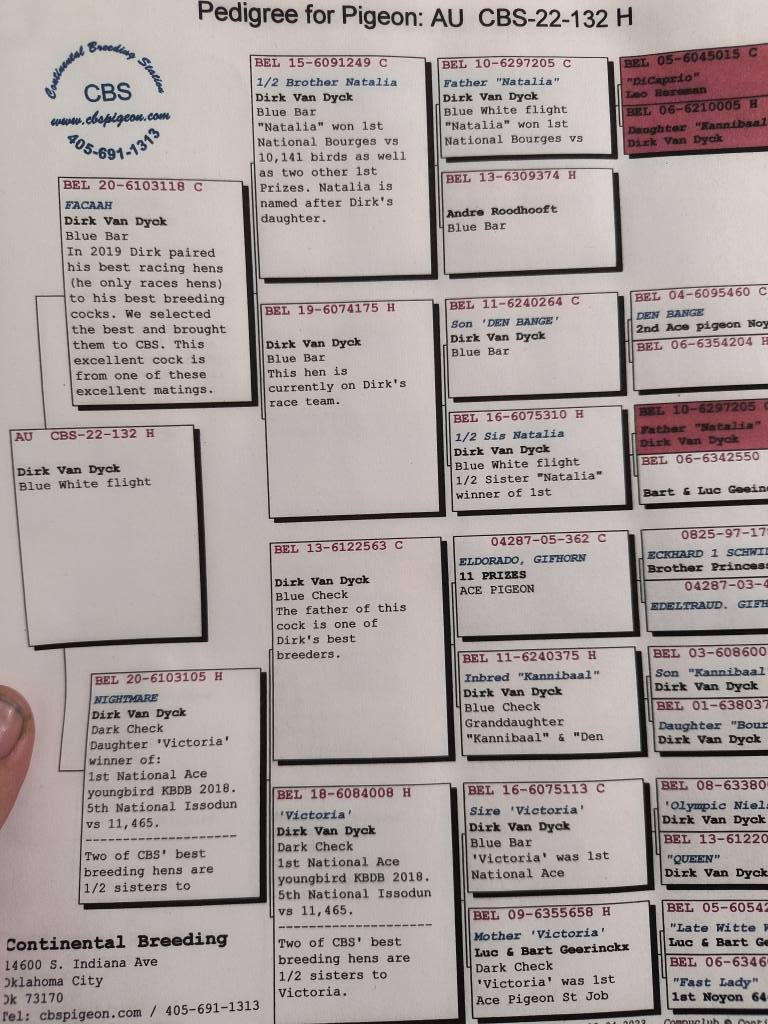 Pedigree for Pigeon: AU CBS-22-132 H
Continental Breeding Station
CBS
www.cbspigeon.com
405-691-1313
AU CBS-22-132 H
Dirk Van Dyck
Blue White flight
BEL 20-6103118 C
FACAAH
Dirk Van Dyck
Blue Bar
In 2019 Dirk paired
his best racing hens
(he only races hens)
to his best breeding
cocks. We selected
the best and brought
them to CBS. This
excellent cock is
from one of these
excellent matings.
BEL 20-6103105 H
NIGHTMARE
Dirk Van Dyck
Dark Check
Daughter 'Victoria'
winner of:
1st National Ace
youngbird KBDB 2018.
5th National Issodun
vs 11,465.
-------------------
Two of CBS' best
breeding hens are
1/2 sisters to
BEL 15-6091249 C
1/2 Brother Natalia
Dirk Van Dyck
Blue Bar
"Natalia" won 1st
National Bourges vs
10,141 birds as well
as two other 1st
Prizes. Natalia is
named after Dirk's
daughter.
BEL 19-6074175 H
Dirk Van Dyck
Blue Bar
This hen is
currently on Dirk's
race team.
BEL 13-6122563 C
Dirk Van Dyck
Blue Check
The father of this
cock is one of
Dirk's best
breeders.
BEL 18-6084008 H
'Victoria'
Dirk Van Dyck
Dark Check
1st National Ace
youngbird KBDB 2018.
5th National Issodun
vs 11,465.
-------------------
Two of CBS' best
breeding hens are
1/2 sisters to
Victoria.
BEL 10-6297205 C
Father "Natalia"
Dirk Van Dyck
Blue White flight
"Natalia" won 1st
National Bourges vs
BEL 13-6309374 H
Andre Roodhooft
Blue Bar
BEL 11-6240264 C
Son 'DEN BANGE'
Dirk Van Dyck
Blue Bar
BEL 16-6075310 H
1/2 Sis Natalia
Dirk Van Dyck
Blue White flight
1/2 Sister "Natalia"
winner of 1st
04287-05-362 C
ELDORADO, GIFHORN
11 PRIZES
ACE PIGEON
BEL 11-6240375 H
Inbred "Kannibaal"
Dirk Van Dyck
Blue Check
Granddaughter
"Kannibaal" & "Den
BEL 16-6075113 C
Sire 'Victoria'
Dirk Van Dyck
Blue Bar
'Victoria' was 1st
National Ace
BEL 09-6355658 H
Mother 'Victoria'
Luc & Bart Geerinckx
Dark Check
'Victoria' was 1st
Ace Pigeon St Job
BEL 05-6045015 C
"DiCaprio"
Leo Hereman
BEL 06-6210005 H
Daughter "Kannibaal
Dirk Van Dyck
BEL 04-6095460 C
DEN BANGE
2nd Ace pigeon Noy
BEL 06-6354204 H
BEL 10-6297205 C
Father "Natalia"
Dirk Van Dyck
BEL 06-6342550
Bart & Luc Geein
0825-97-17
ECKHARD 1 SCHWI
Brother Princes
04287-03-4
EDELTRAUD. GIFH
BEL 03-608600
Son "Kannibaal
Dirk Van Dyck
BEL 01-638037
Daughter "Bour
Dirk Van Dyck
BEL 08-63380
'Olympic Niel
Dirk Van Dyck
BEL 13-61220
"QUEEN"
Dirk Van Dyck
BEL 05-6054
"Late Witte
Luc & Bart Ge
BEL 06-6346
"Fast Lady"
1st Noyon 64
Continental Breeding
14600 S. Indiana Ave
Oklahoma City
Ok 73170
Tel: cbspigeon.com / 405-691-1313